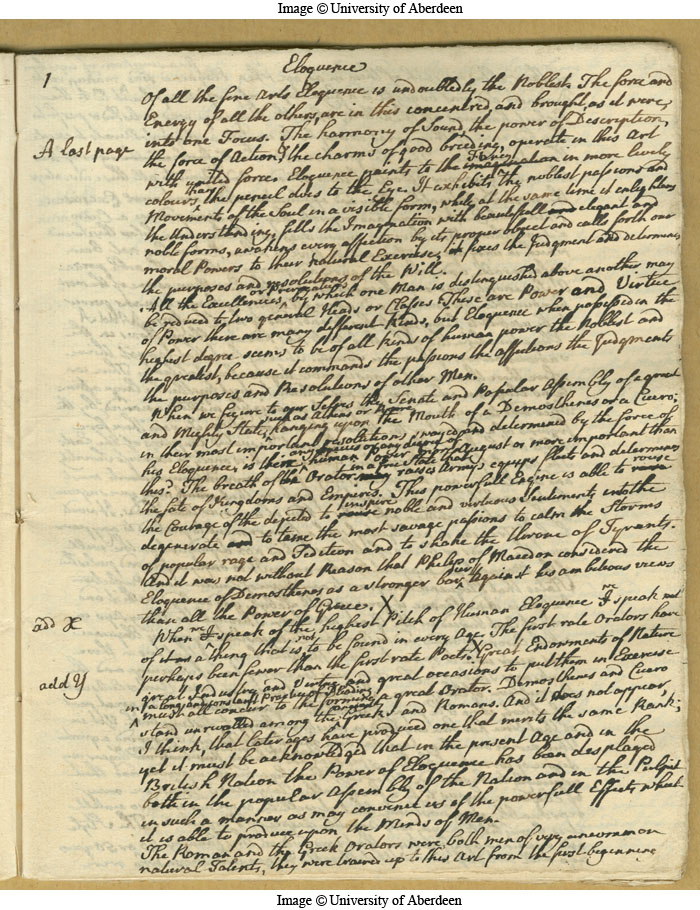 Image © University of Aberdeen
1
Eloquence
Of all the fine Arts Eloquence is undoubtedly the Noblest. The force and
Energy of all the others, are in this concentred, and brought, as it were,
into one Focus. The harmony of Sound, the power of Description,
A last page
the force of Action, the charms of good breeding, operate in this Art
with united force. Eloquence paints to the Fancy in more lively
colours than the pencil does to the Eye. It exhibits the noblest passions and
Movements of the Soul in a visible form, while at the same time it enlightens
the Understanding, fills the Imagination with beautifull and elegant and
noble forms, awakens every affection by its proper object and calls forth our
moral Powers to their natural Exercise, it fixes the Judgment and determines
the purposes and resolutions of the Will.
All the Excellencies or Prerogatives by which one Man is distinguished above another may
be reduced to two general Heads or Classes. These are Power and Virtue
of Power there are many different kinds, but Eloquence when possessed in the
highest degree seems to be of all kinds of human power the Noblest and
the greatest, because it commands the passions the affections the Judgments
the purposes and Resolutions of other Men.
When we figure to our Selves the Senate and Popular Assembly of a great
and Mighty State, such as Athens or Rome hanging upon the Mouth of a Demosthenes or a Cicero;
in their most important resolutions swayed and determined by the force of
his Eloquence, is there any species or any degree of human Power more August or more important than
this? The breath of the Orator in a free State raises Armys equips fleets and determines
the fate of Kingdoms and Empires. This powerfull Engine is able to rouse
the Courage of the dejected to inspire noble and virtuous Sentiments into the
degenerate and to tame the most savage passions to calm the Storms
of popular rage and Sedition and to shake the throne of Tyrants.
And it was not without Reason that Philip of Macedon considered the
Eloquence of Demosthenes as a stronger bar against his ambitious views
than all the Power of Greece. X
add X
When I speak of the highest Pitch of Human Eloquence I speak not
of it as a thing that is to be found in every Age. The first rate Orators have
perhaps been fewer than the first rate Poets. Great Endowments of Nature
add Y
great Industry and Virtue and great occasions to put them in Exercise
in a long and constant Practice of Pleading
must all concur to the forming a great Orator. Demosthenes and Cicero
stand unrivalled among the Greeks and Romans. And it does not appear,
I think, that later ages have produced one that merits the same Rank;
yet it must be acknowledged that in the present Age and in the
British Nation the Power of Eloquence has been desplayed
both in the popular Assembly of the Nation and in the Pulpit
in such a manner as may convence us of the powerfull Effects which
it is able to produce upon the Minds of Men.
The Roman and the Greek Orators were both men of very uncommon
natural Talents, they were trained up to this Art from the first beginning
Image © University of Aberdeen